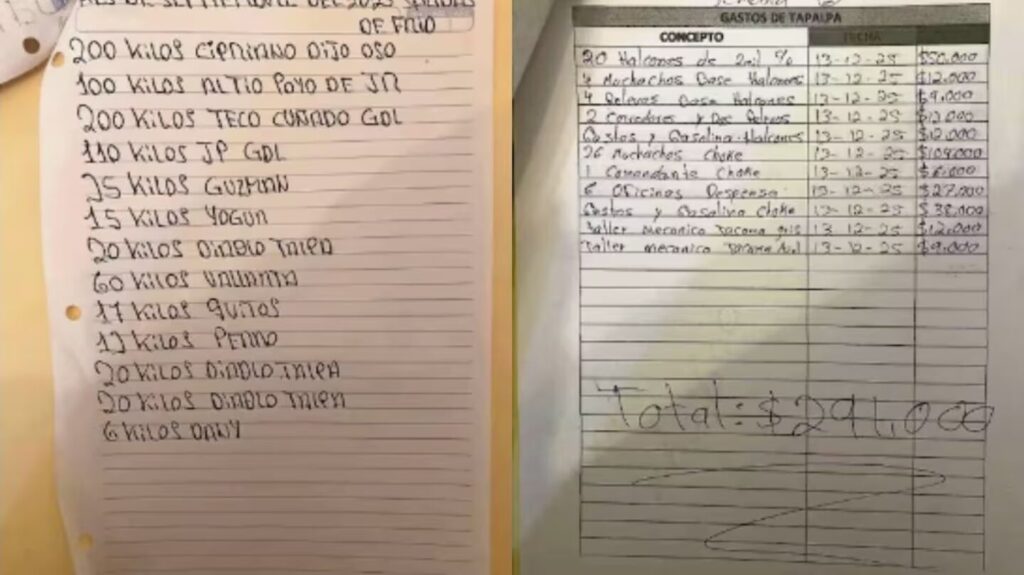 MES DE SEPTIEMBRE DEL 2025 SALIDAS
DE FRIO
200 KILOS CIPRIANO DIJO OSO
100 KILOS ALTIO POYO DE JR
200 KILOS TECO CUÑADO GDL
110 KILOS JP GDL
35 KILOS GUZMAN
15 KILOS YOGUR
20 KILOS DIABLO TALPA
60 KILOS VALLARTA
17 KILOS QUITOS
13 KILOS PERRO
20 KILOS DIABLO TALPA
20 KILOS DIABLO TALPA
6 KILOS DANY
GASTOS DE TAPALPA
CONCEPTO FECHA
20 Halcones de 2mil % 13-12-25 $50,000
4 Muchachos Base Halcones 13-12-25 $12,000
4 Relevos Base Halcones 13-12-25 $9,000
2 y 13-12-25 $12,000
Gastos y Gasolina Halcones 13-12-25 $12,000
26 Muchachos Choke 13-12-25 $104,000
1 Comandante Choke 13-12-25 $6,000
6 Oficinas Despensa 13-12-25 $27,000
Gastos y Gasolina Choke 13-12-25 $38,000
Taller Mecanico Tacoma gris 13-12-25 $12,000
Taller mecanico Tacoma 13-12-25 $9,000
Total: $291,000